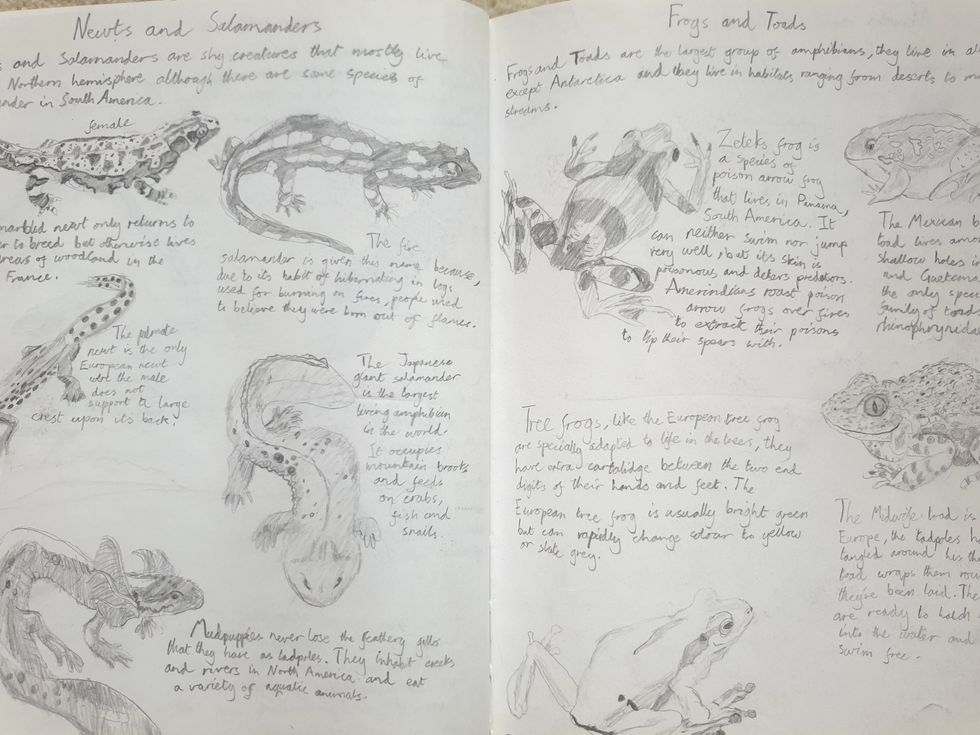 Newts and Salamanders
s and Salamanders are shy creatures that mostly live
Northern hemisphere although there are some species of
ander in South America.
female
marbled newt only returns to
er to breed but otherwise lives
areas of woodland in the
France.
The fire
salamander is given this name because,
due to its habit of hibernating in logs
used for burning on fires, people used
to believe they were born out of flames.
The palmate
newt is the only
European newt
were the male
does not
support a large
crest upon its back.
The Japanese
giant salamander
is the largest
living amphibian
in the world.
It occupies
mountain brooks
and feeds
on crabs,
fish and
snails.
Mudpuppies never lose the feathery gills
that they have as tadpoles. They inhabit creeks
and rivers in North America and eat
a variety of aquatic animals.
Frogs and Toads
Frogs and Toads are the largest group of amphibians, they live in al
except Antarctica and they live in habitats ranging from deserts to m
streams.
Zeteks frog is
a species of
poison arrow frog
that lives in Panama,
South America. It
can neither swim nor jump
very well, but its skin is
poisonous and deters predators.
Amerindians roast poison
arrow frogs over fires
to extract their poisons
to tip their spears with.
The Mexican b
toad lives am
shallow holes i
and Guatema
the only spec
family of toad
rhinophrynida
Tree frogs, like the European tree frog
are specially adapted to life in the trees, they
have extra cartalidge between the two end
digits of their hands and feet. The
European tree frog is usually bright green
but can rapidly change colour to yellow
or slate grey.
The Midwife toad is
Europe, the tadpoles h
tangled around his th
toad wraps them rou
they've been laid. The
are ready to hatch
into the water and
swim free.